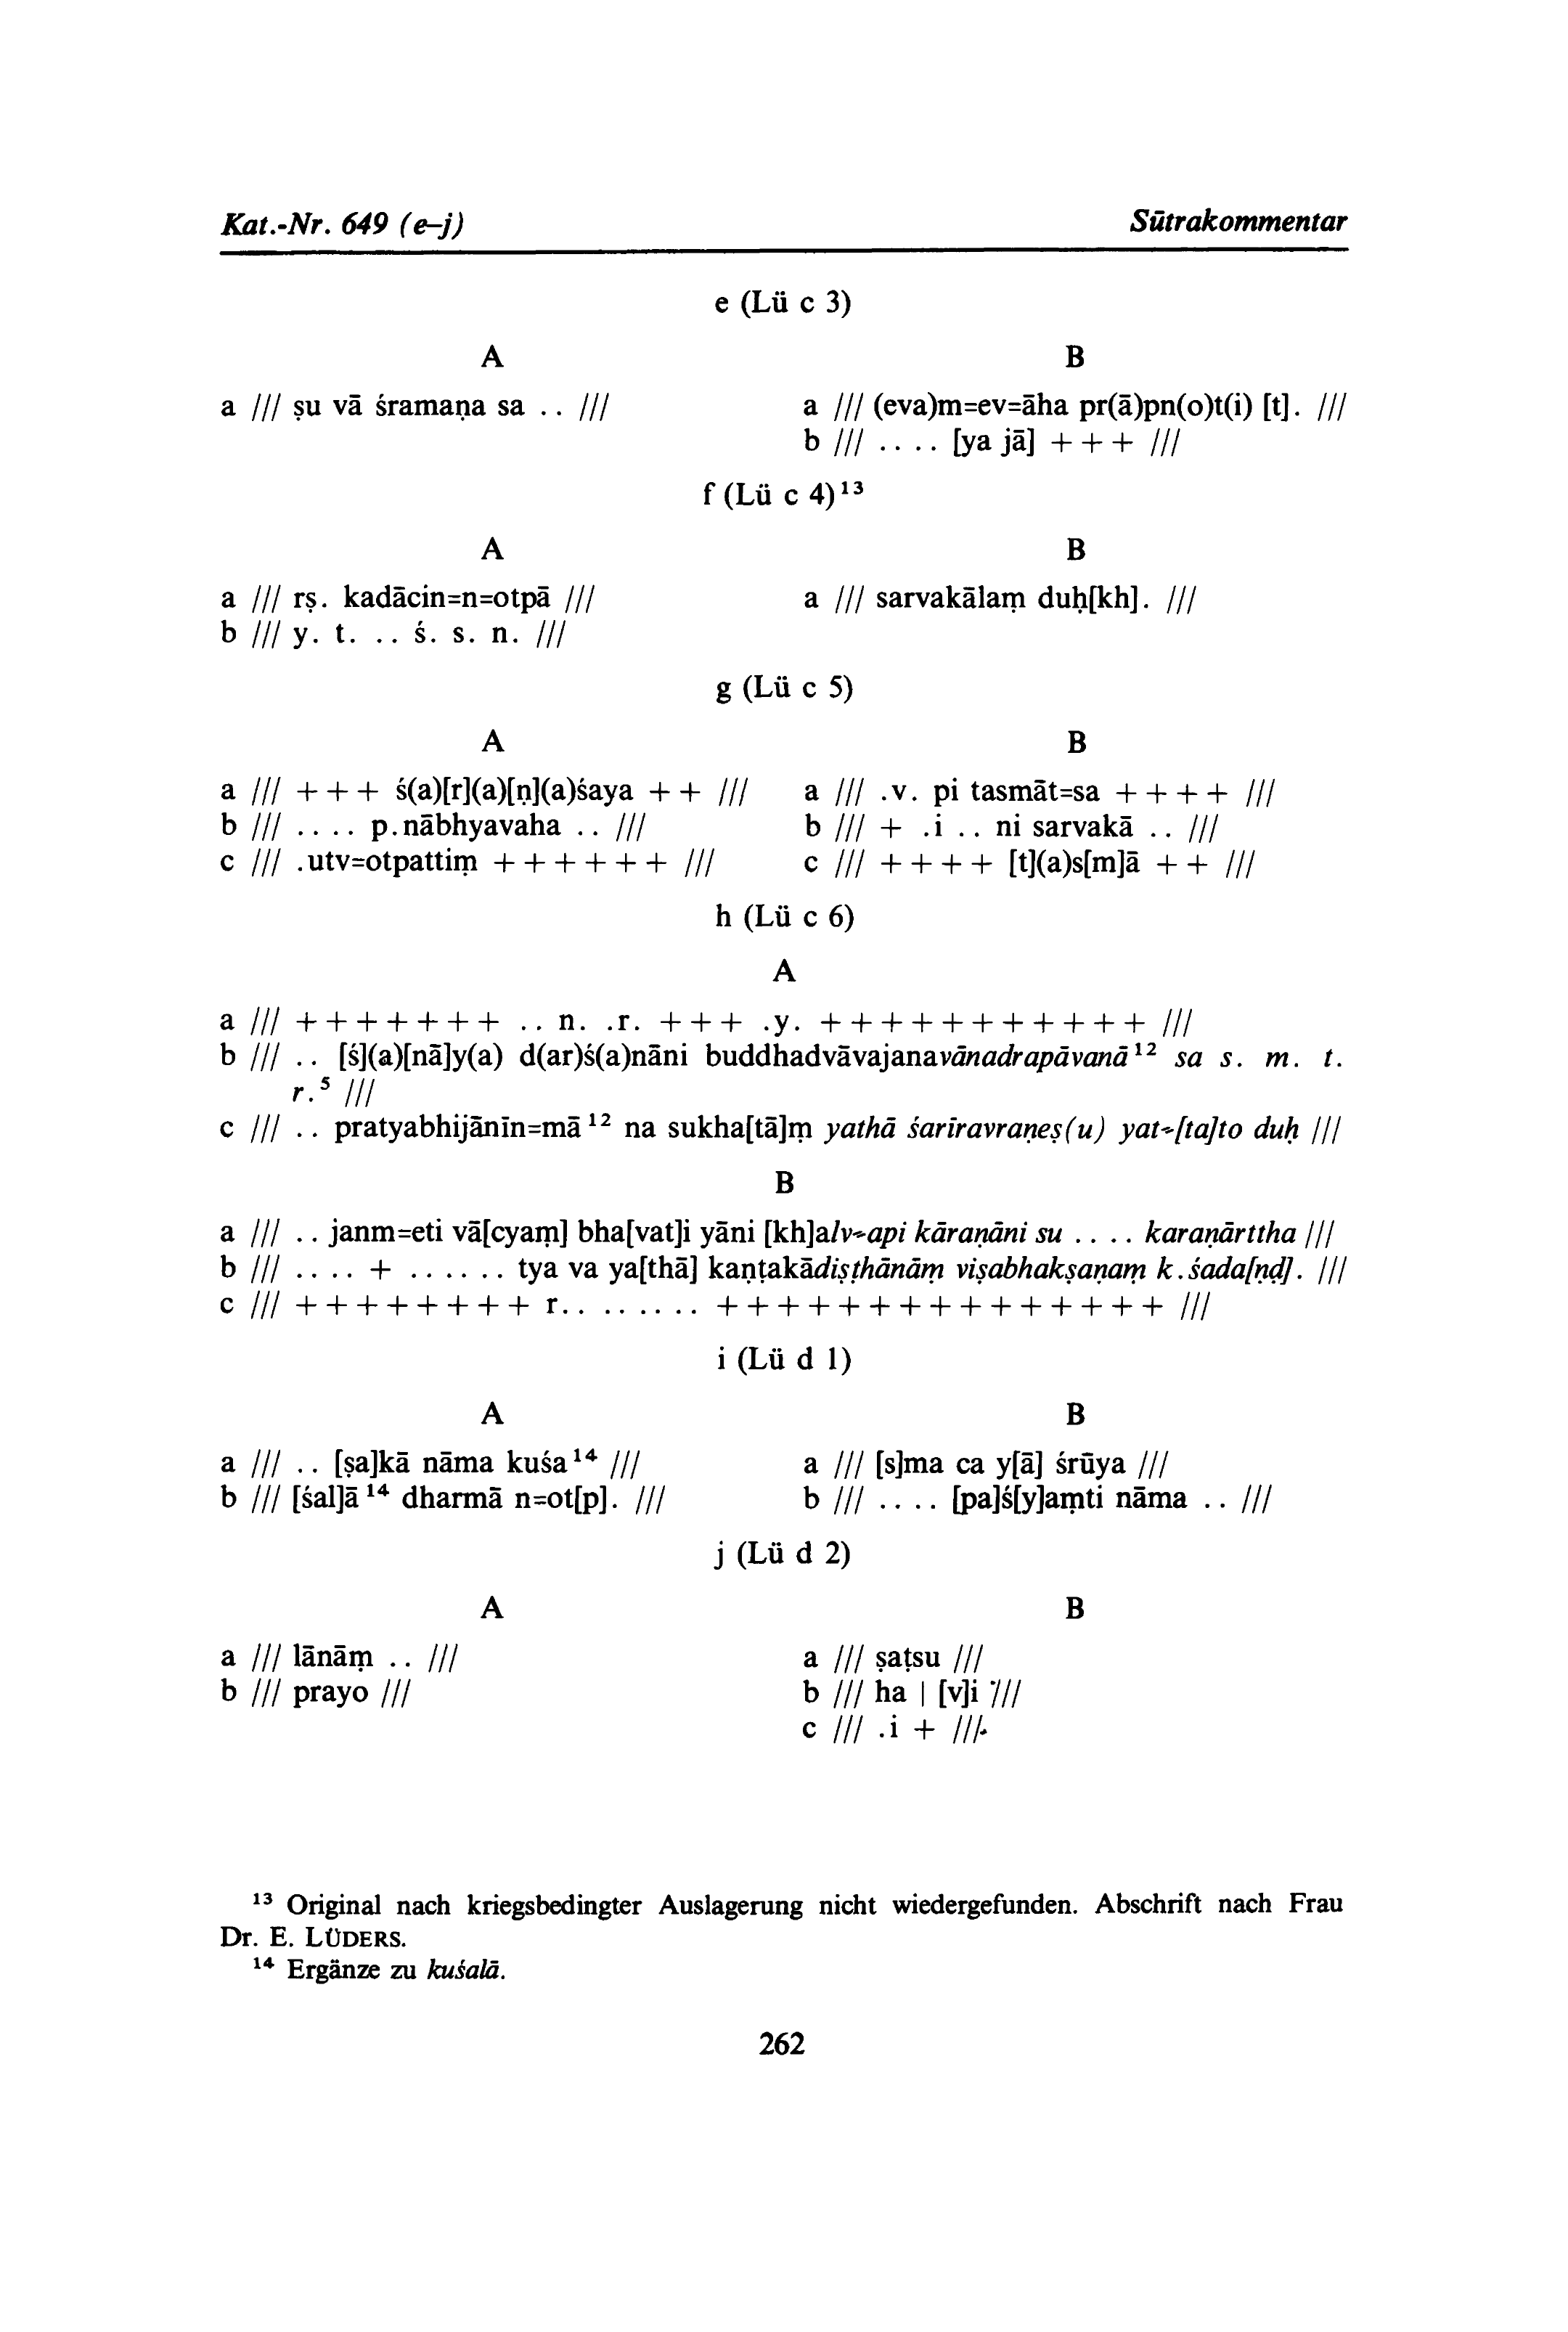 Kat.-Nr. 649 (e–j) Sūtrakommentar
e (Lü c 3)
A
a /// ṣu vā śramaṇa sa .. ///
B
a /// (eva)m=ev=āha pr(ā)pn(o)t(i) [t]. ///
b /// .... [ya jā] + + + ///
f (Lü c 4)¹³
A
a /// rṣ. kadācin=n=otpā ///
b /// y. t. .. ś. s. n. ///
B
a /// sarvakālaṃ duḥ[kh]. ///
g (Lü c 5)
A
a /// + + + ś(a)[r](a)[ṇ](a)śaya + + ///
b /// .... p.nābhyavaha .. ///
c /// .utv=otpattiṃ + + + + + + ///
B
a /// .v. pi tasmāt=sa + + + + ///
b /// + .i .. ni sarvakā .. ///
c /// + + + + [t](a)s[m]ā + + ///
h (Lü c 6)
A
a /// + + + + + + + .. n. .r. + + + .y. + + + + + + + + + + + ///
b /// .. [ś](a)[nā]y(a) d(ar)ś(a)nāni buddhadvāvajanavānadrapāvanā¹² sa s. m. t.
r.⁵ ///
c /// .. pratyabhijānīn=mā¹² na sukha[tā]ṃ yathā śarīravraṇeṣ(u) yat=[ta]to duḥ ///
B
a /// .. janm=eti vā[cyaṃ] bha[vat]i yāni [kh]alv=api kāraṇāni su .... karaṇārttha ///
b /// .... + ...... tya va ya[thā] kaṇṭakādiṣṭhānāṃ viṣabhakṣaṇaṃ k.śada[ṇḍ]. ///
c /// + + + + + + + + r......... + + + + + + + + + + + + + + + ///
i (Lü d 1)
A
a /// .. [ṣa]kā nāma kuśa¹⁴ ///
b /// [śal]ā¹⁴ dharmā n=ot[p]. ///
B
a /// [s]ma ca y[ā] śrūya ///
b /// .... [pa]ś[y]aṃti nāma .. ///
j (Lü d 2)
A
a /// lānāṃ .. ///
b /// prayo ///
B
a /// ṣaṭsu ///
b /// ha | [v]i ///
c /// .i + ///
¹³ Original nach kriegsbedingter Auslagerung nicht wiedergefunden. Abschrift nach Frau
Dr. E. LÜDERS.
¹⁴ Ergänze zu kuśalā.
262